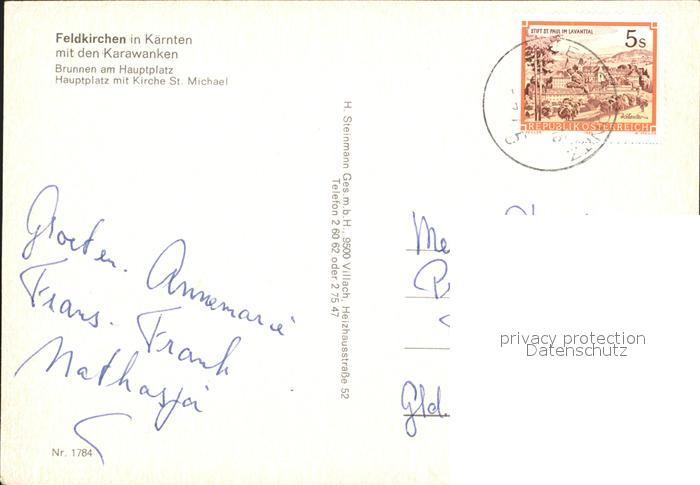 Feldkirchen in Kärnten
mit den Karawanken
Brunnen am Hauptplatz
Hauptplatz mit Kirche St. Michael
STIFT ST. PAUL IM LAVANTTAL
5s
REPUBLIK ÖSTERREICH
H. Steinmann Ges.m.b.H., 9500 Villach, Heizhausstraße 52
Telefon 2 60 62 oder 2 75 47
Groeten. Annemarie
Frans. Frank
Nathasja
Me
Gld.
privacy protection
Datenschutz
Nr. 1784